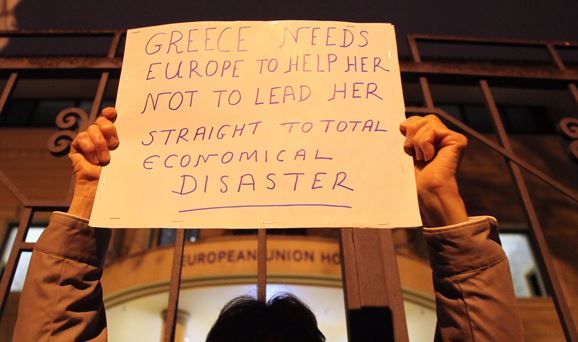 GREECE NEEDS
EUROPE TO HELP HER
NOT TO LEAD HER
STRAIGHT TO TOTAL
ECONOMICAL
DISASTER
EUROPEAN UNION